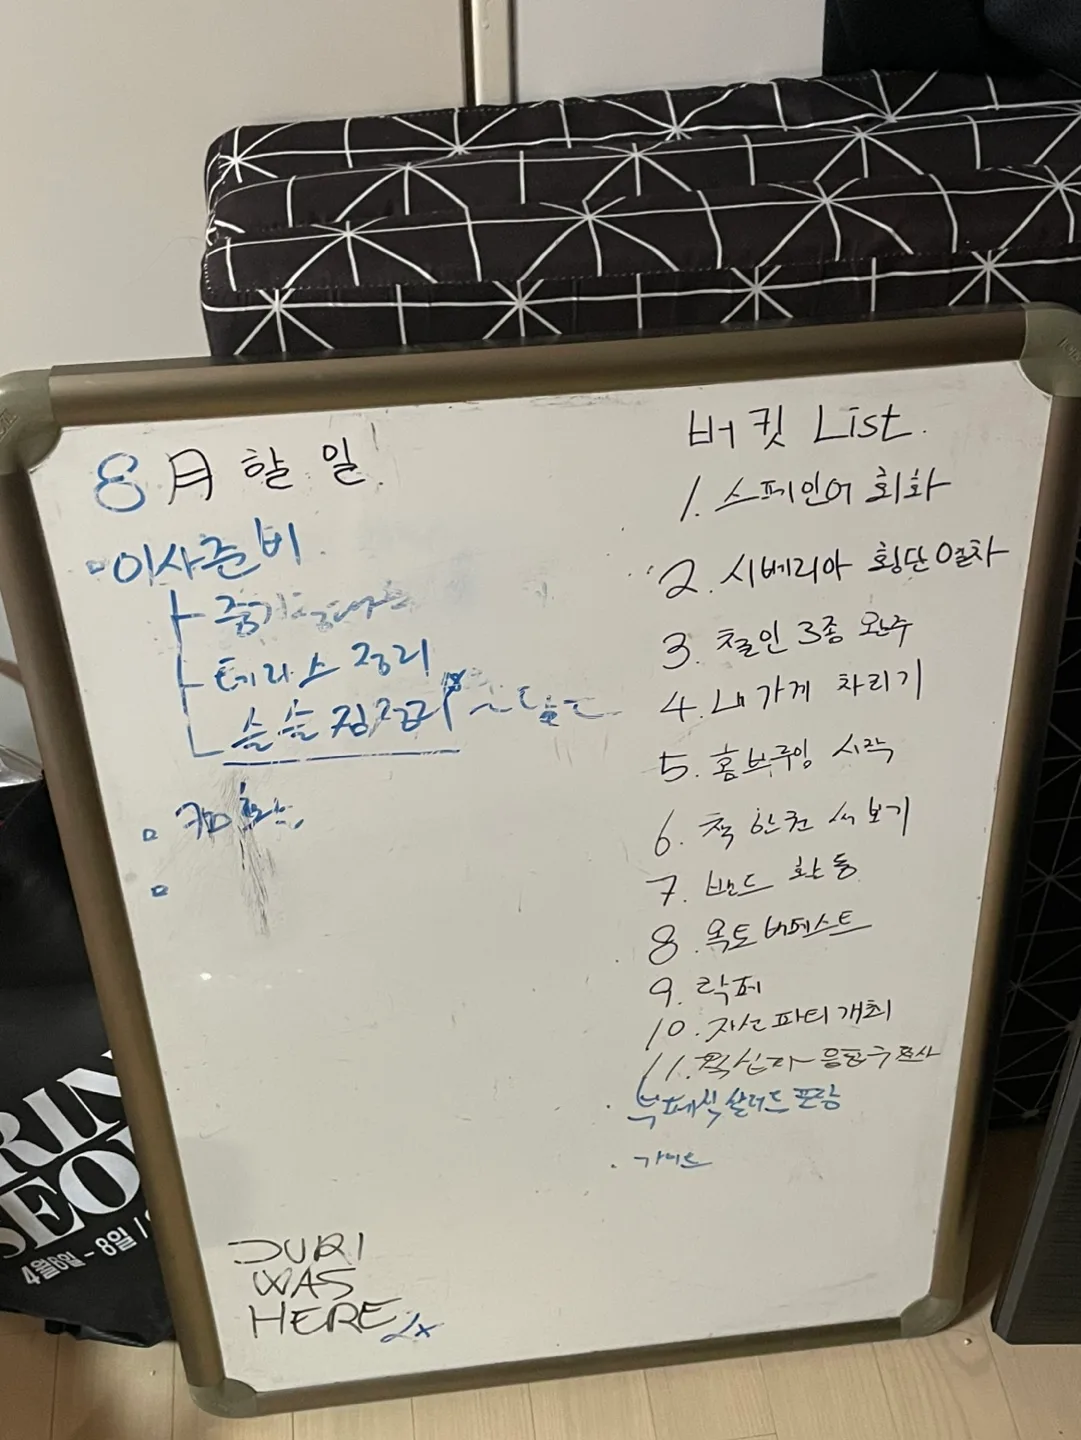 8月 할 일!
이사준비
테라스 정리
슬슬 짐정리
버킷 List.
1. 스페인어 회화
2. 시베리아 횡단열차
3. 철인 3종 완주
4. 내 가게 차리기
5. 홈브루잉 시작
6. 책 한권 써보기
7. 밴드 활동
8. 옥토버페스트
9. 락페
10. 자선파티 개최
11. 적십자 응급구조사
샐러드
DURI
WAS
HERE 2x
RIN
SEOU
4월6일-8일